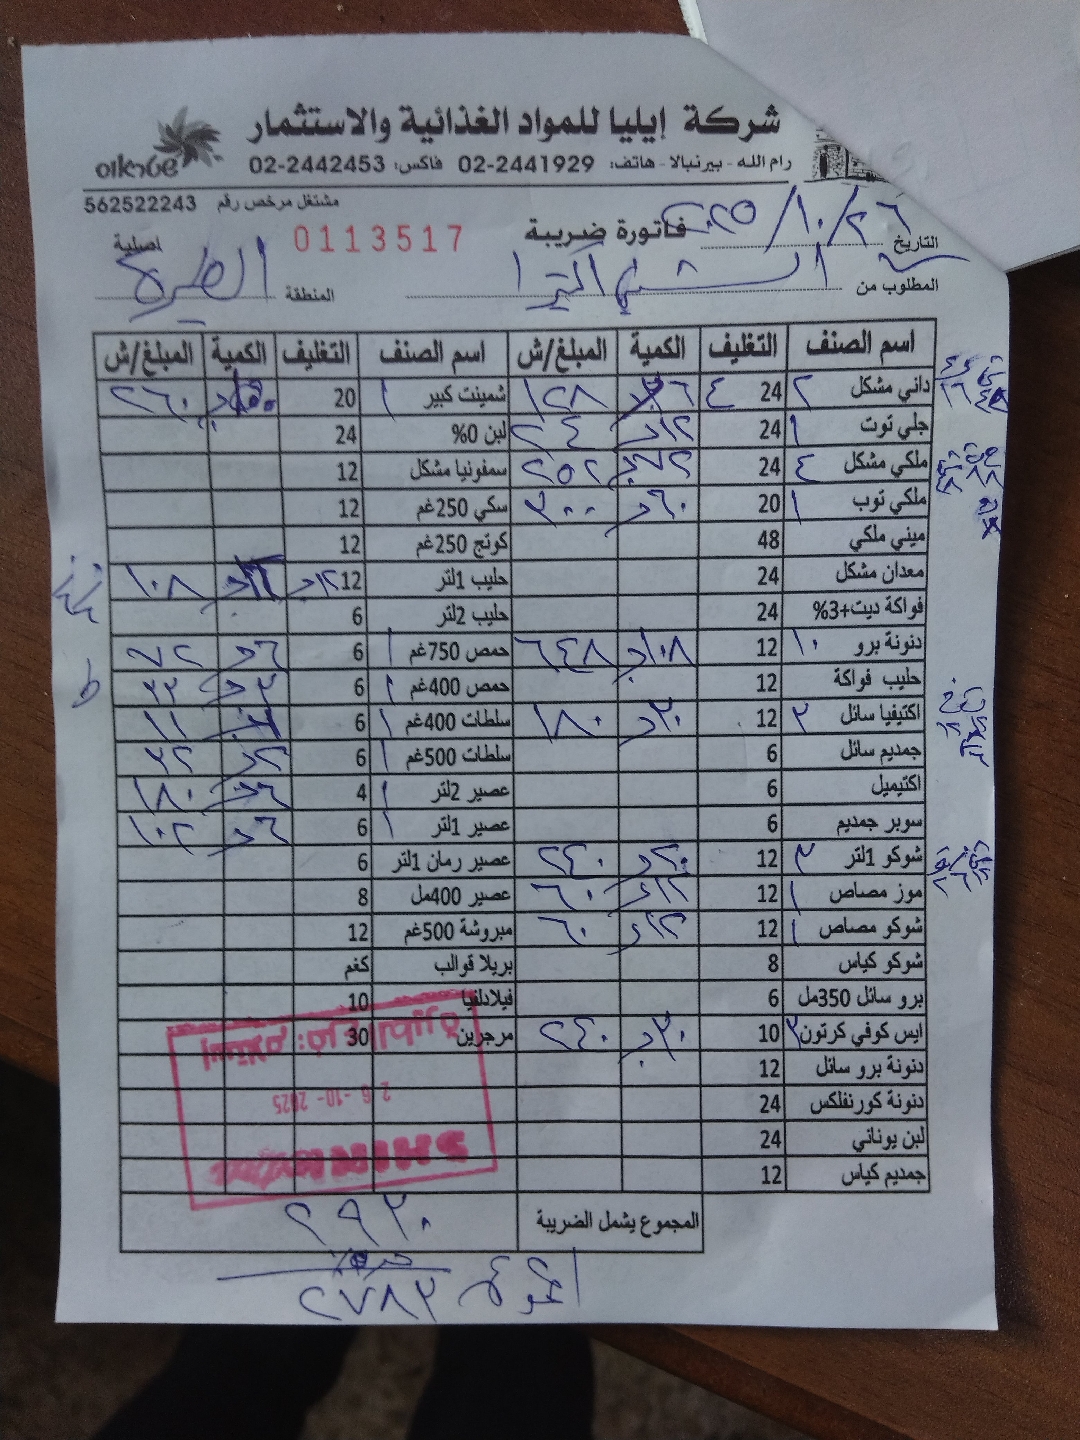 شركة إيليا للمواد الغذائية والاستثمار
رام الله - بيرنبالا - هاتف: 02-2441929 فاكس: 02-2442453
مشتغل مرخص رقم 562522243
التاريخ ٢٠٢٥/١٠/٢٦ فاتورة ضريبة 0113517 اصلية
المطلوب من الشني اكسترا المنطقة الطيرة
اسم الصنف التغليف الكمية المبلغ/ش اسم الصنف التغليف الكمية المبلغ/ش
داني مشكل ٢ 24 ٤ ١٢٨ شمينت كبير ١ 20 ٢٦٠
جلي توت ١ 24 ١٢د ٢٤ لبن 0% 24
ملكي مشكل ٤ 24 ٢٥٢ سمفونيا مشكل 12
ملكي توب ١ 20 ٦٠د ٣٠٠ سكي 250غم 12
ميني ملكي 48 كوتج 250غم 12
معدان مشكل 24 حليب 1لتر 12 ١٢د ١٠٨
فواكة ديت+3% 24 حليب 2لتر 6
دنونة برو ١٠ 12 ١٠٨د ٦٤٨ حمص 750غم ١ 6 ٦د ٧٢
حليب فواكة 12 حمص 400غم ١ 6 ٣د ٢٢
اكتيفيا سائل ٣ 12 ٣٠د ١٨٠ سلطات 400غم ١ 6 ١١
جمديم سائل 6 سلطات 500غم ١ 6 ٢د ٢٢
اكتيميل 6 عصير 2لتر ١ 4 ٦د ١٨٠
سوبر جمديم 6 عصير 1لتر ١ 6 ٦د ١٠٢
شوكو 1لتر ٣ 12 ٢٠د ٢٤٠ عصير رمان 1لتر 6
موز مصاص ١ 12 ١٢د ٦٠ عصير 400مل 8
شوكو مصاص ١ 12 ١٢د ٦٠ مبروشة 500غم 12
شوكو كياس 8 بريلا قوالب كغم
برو سائل 350مل 6 فيلادلفيا 10
ايس كوفي كرتون ٣ 10 ٣٠د ٢٤٠ مرجرين 30
دنونة برو سائل 12
دنونة كورنفلكس 24
لبن يوناني 24
جمديم كياس 12
استلام فرع: الطيرة
26-10-2025
المجموع يشمل الضريبة ٢٩٣٠
٢٧٨٣